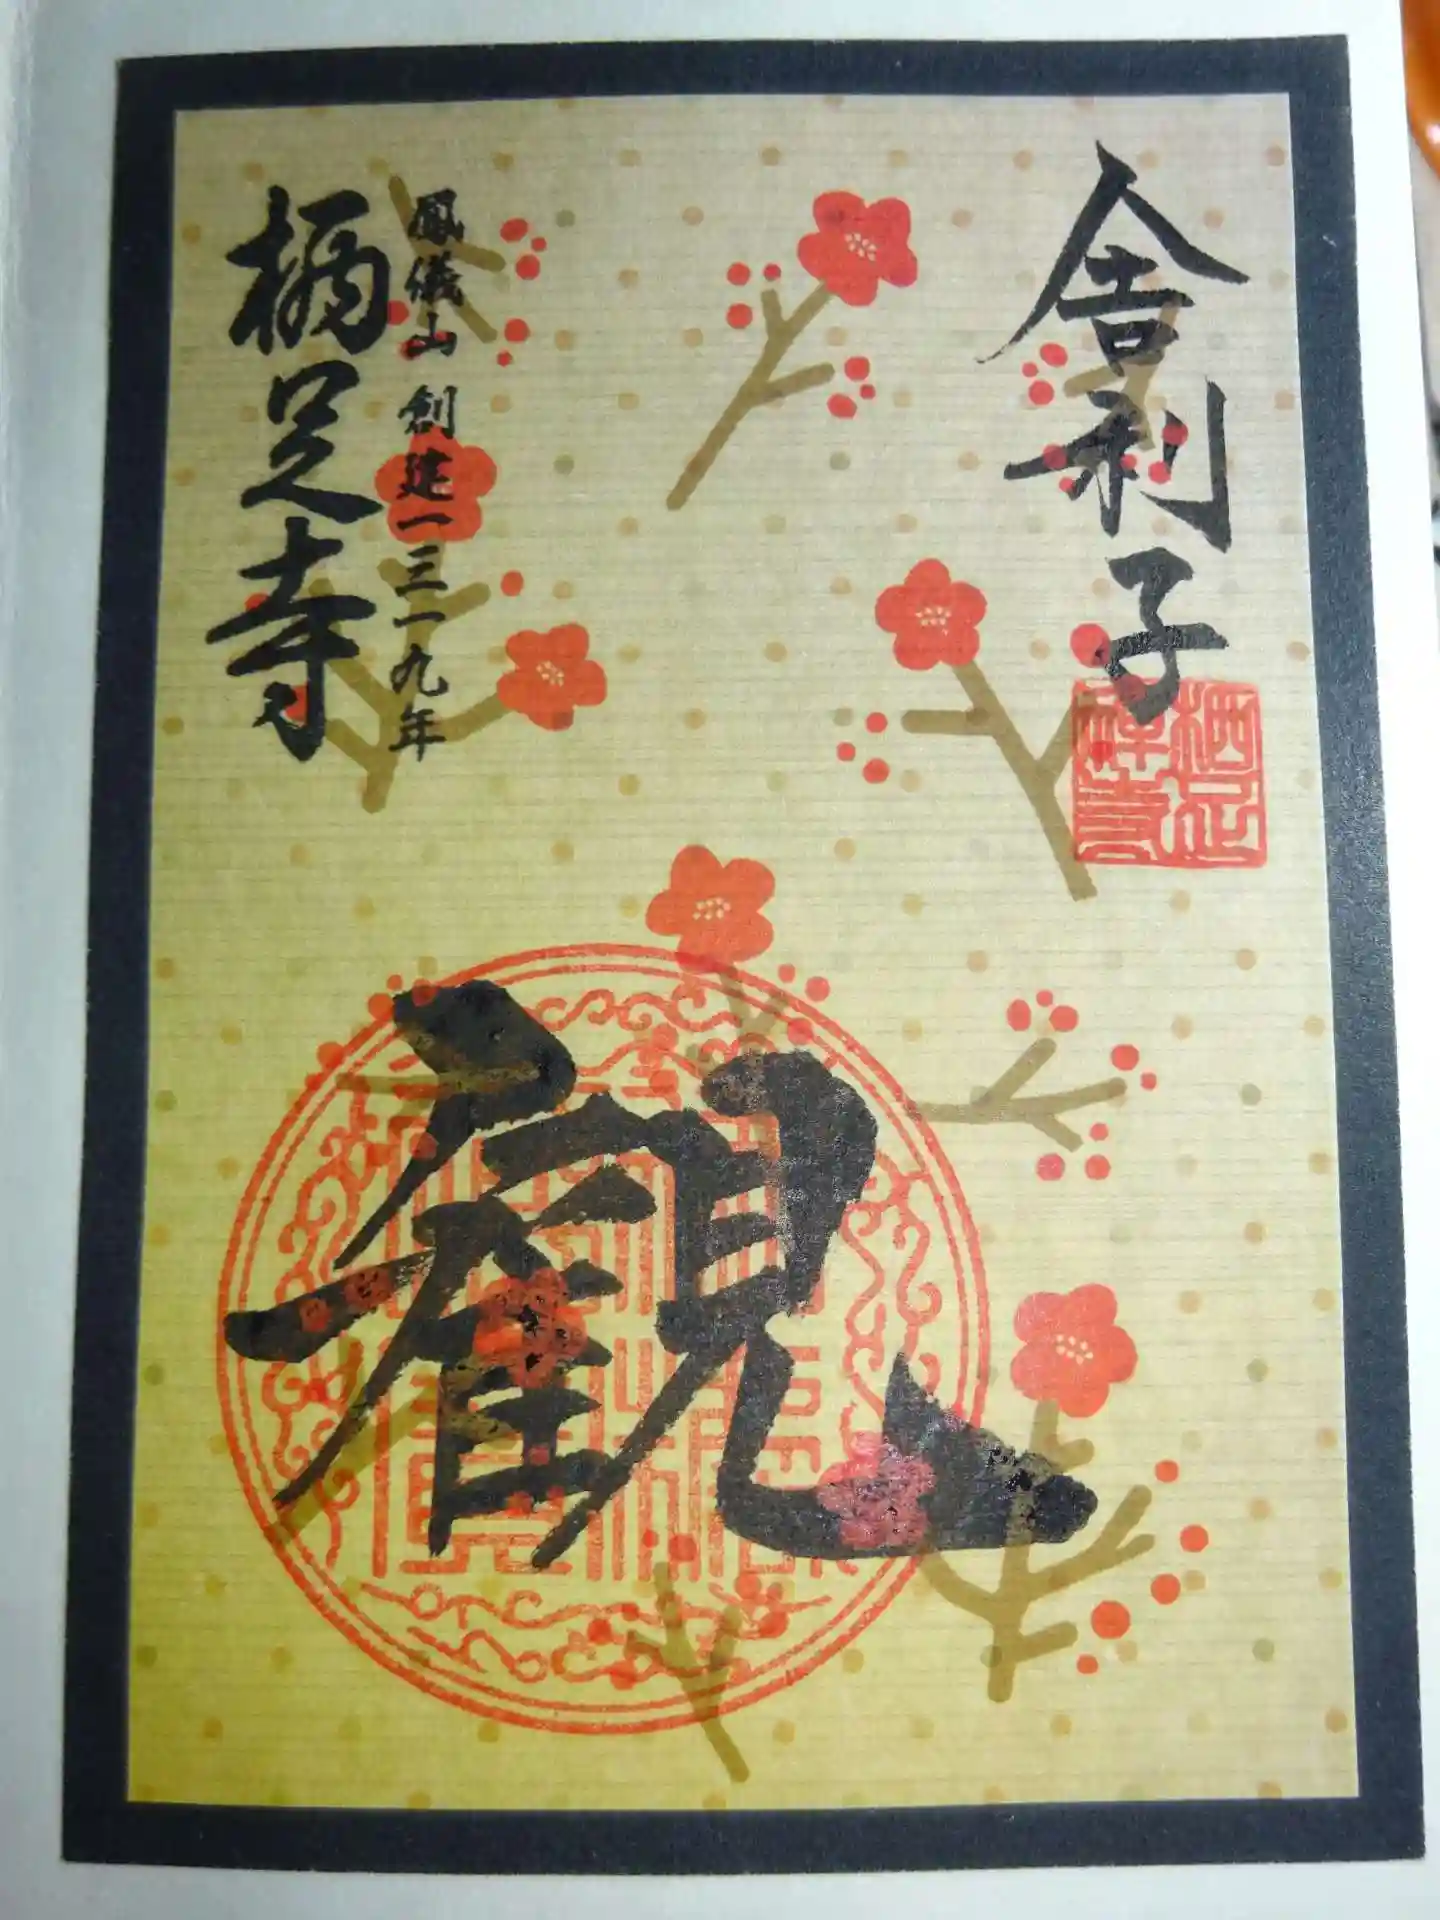 舎利子
栖足
禅寺
観
鳳儀山 創建一三一九年
栖足寺